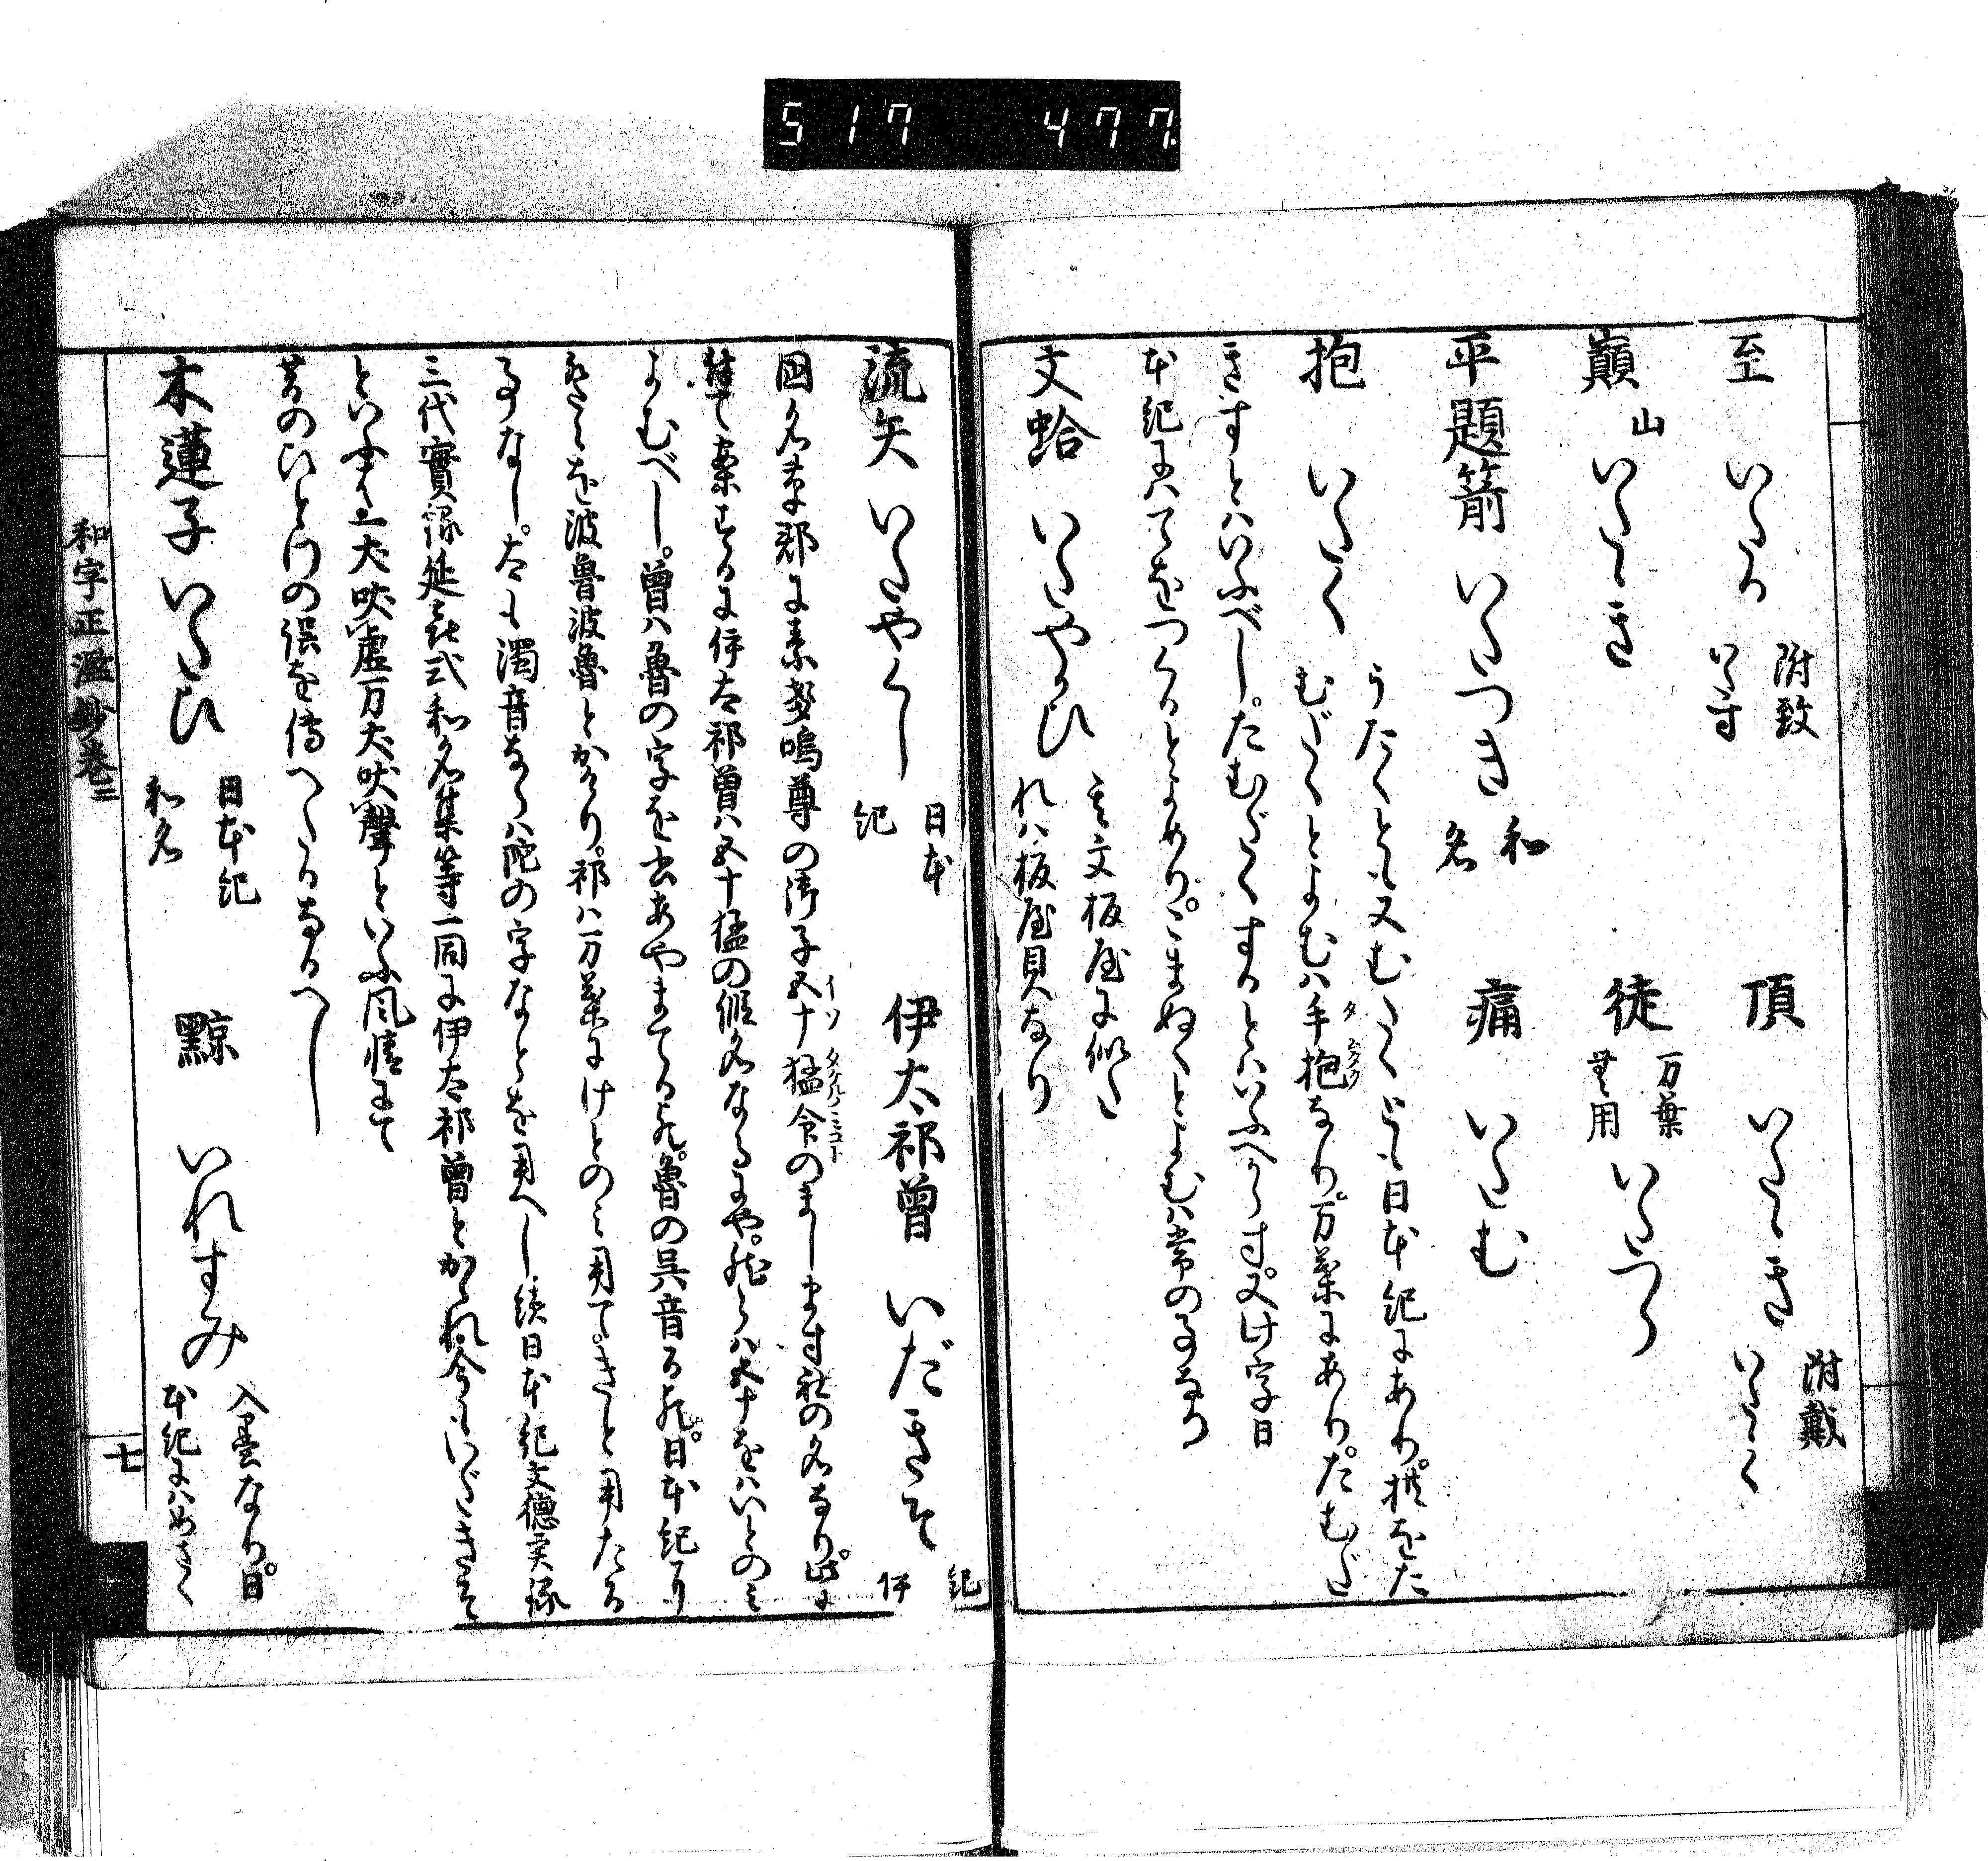 517 477
至 いたる 附致 いたす 頂 いたゝき 附戴 いたゝく
巓 山 いたゝき 徒 万葉 無用 いたつら
平題箭 いたつき 和名 痛 いたむ
抱 いたく うたくとも又むたくとも日本紀にあり。拱をた
むだくとよむハ手抱なり。万葉にあり。たむだ
きすとハいふべし。たむだくするとハいふへからす。又此字日
本紀にハてをつくるとよめり。こまぬくとよむハ常の事なり
文蛤 いたやかひ 其文板屋に似た
れハ板屋貝なり
流矢 いたやくし 日本紀 伊太祁曽 いだきそ 紀伊
國名草郡に素戔嗚尊の御子五十猛命のまします社の名なり。此に
イソ タケルノミコト
推て案するに伊太祁曽ハ五十猛の假名なるにや。然らハ五十をハいとのミ
よむべし。曽ハ魯の字を書あやまてる歟。魯の呉音る歟。日本紀に
を波魯波魯とかけり。祁ハ万葉にけとのミ用て。きと用たる
事なし。太も濁音ならハ陀の字なとを用へし續日本紀文徳実録
三代實録延喜式和名集等一同に伊太祁曽とかゝれ今もいだきそ
といふ。一犬吠虚万犬吠聲といふ風情にて
昔のひとりの誤を傳へたるなるへし
木蓮子 いたひ 日本紀 和名 黥 いれすみ 入墨なり。日
本紀にハめさく
和字正濫鈔卷二
七